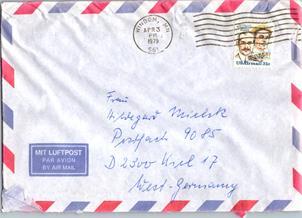 WINDOM, MN
APR 3
PM
1979
561
USAirmail 31c
Frau
Hildegard Mielsk
Postfach 9085
D 2300 Kiel 17
West-Germany
MIT LUFTPOST
PAR AVION
BY AIR MAIL